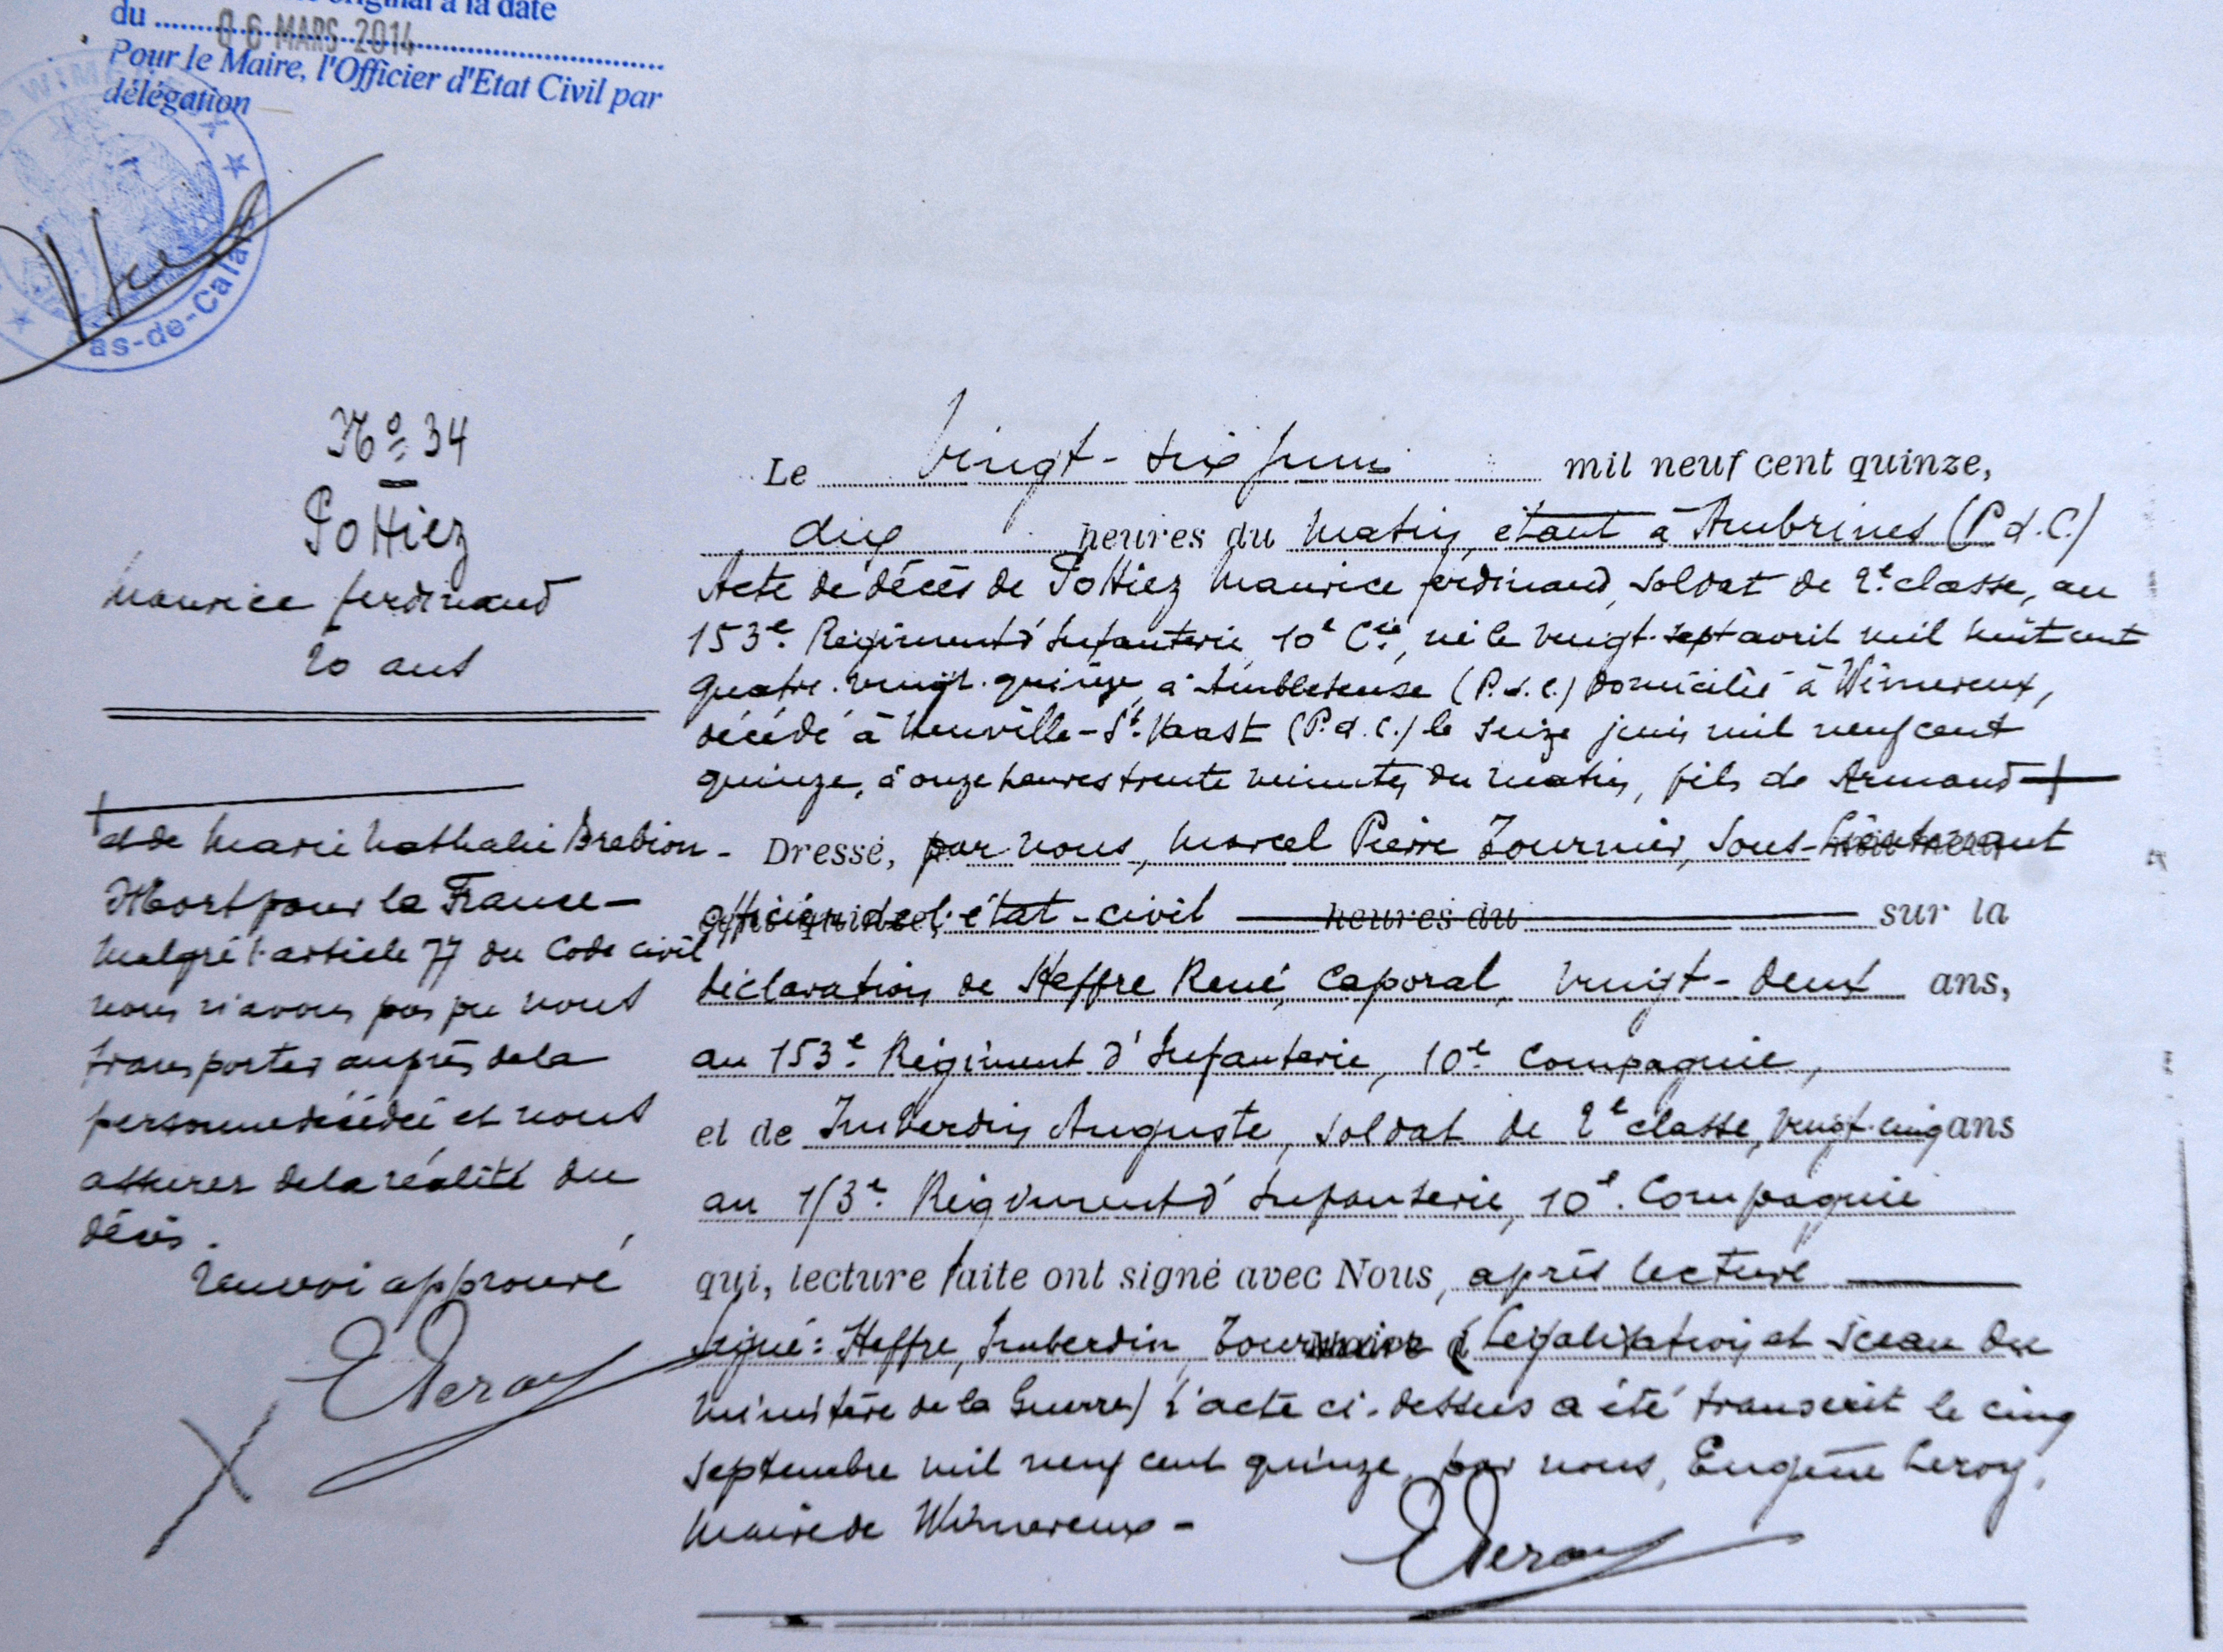 original à la date
du
06 MARS 2014
Pour le Maire, l'Officier d'Etat Civil par
délégation
WIMEREUX
Pas-de-Calais
No 34
Pottiez
Maurice ferdinand
20 ans
Le vingt-six juin mil neuf cent quinze,
dix heures du matin, étant à Ambrines (P.d.C.)
Acte de décès de Pottiez Maurice ferdinand, soldat de 2e classe, au
153e Régiment d'Infanterie 10e Cie, né le vingt-sept avril mil huit cent
quatre-vingt-quinze, à Ambleteuse (P.d.C.) domicilié à Wimereux,
décédé à Neuville-St-Vaast (P.d.C.) le seize juin mil neuf cent
quinze, à onze heures trente minutes du matin, fils de Armand +
+
et de Marie Nathalie Brebion -
Mort pour la France -
Malgré l'article 77 du Code civil
nous n'avons pas pu nous
transporter auprès de la
personne décédée et nous
assurer de la réalité du
décès.
Renvoi approuvé
ELeroy
Dressé, par nous, Marcel Pierre Tournier, Sous-Lieutenant
officier de l'état-civil heures du sur la
déclaration de Heffre René, Caporal, vingt-deux ans,
au 153e Régiment d'Infanterie, 10e Compagnie,
et de Imberdin Auguste, soldat de 2e classe, vingt-cinq ans
au 153e Régiment d'Infanterie, 10e Compagnie
qui, lecture faite ont signé avec Nous, après lecture
Signé: Heffre, Imberdin, Tournier (Légalisation et sceau du
Ministère de la Guerre) L'acte ci-dessus a été transcrit le cinq
septembre mil neuf cent quinze, par nous, Eugène Leroy,
Maire de Wimereux -
ELeroy